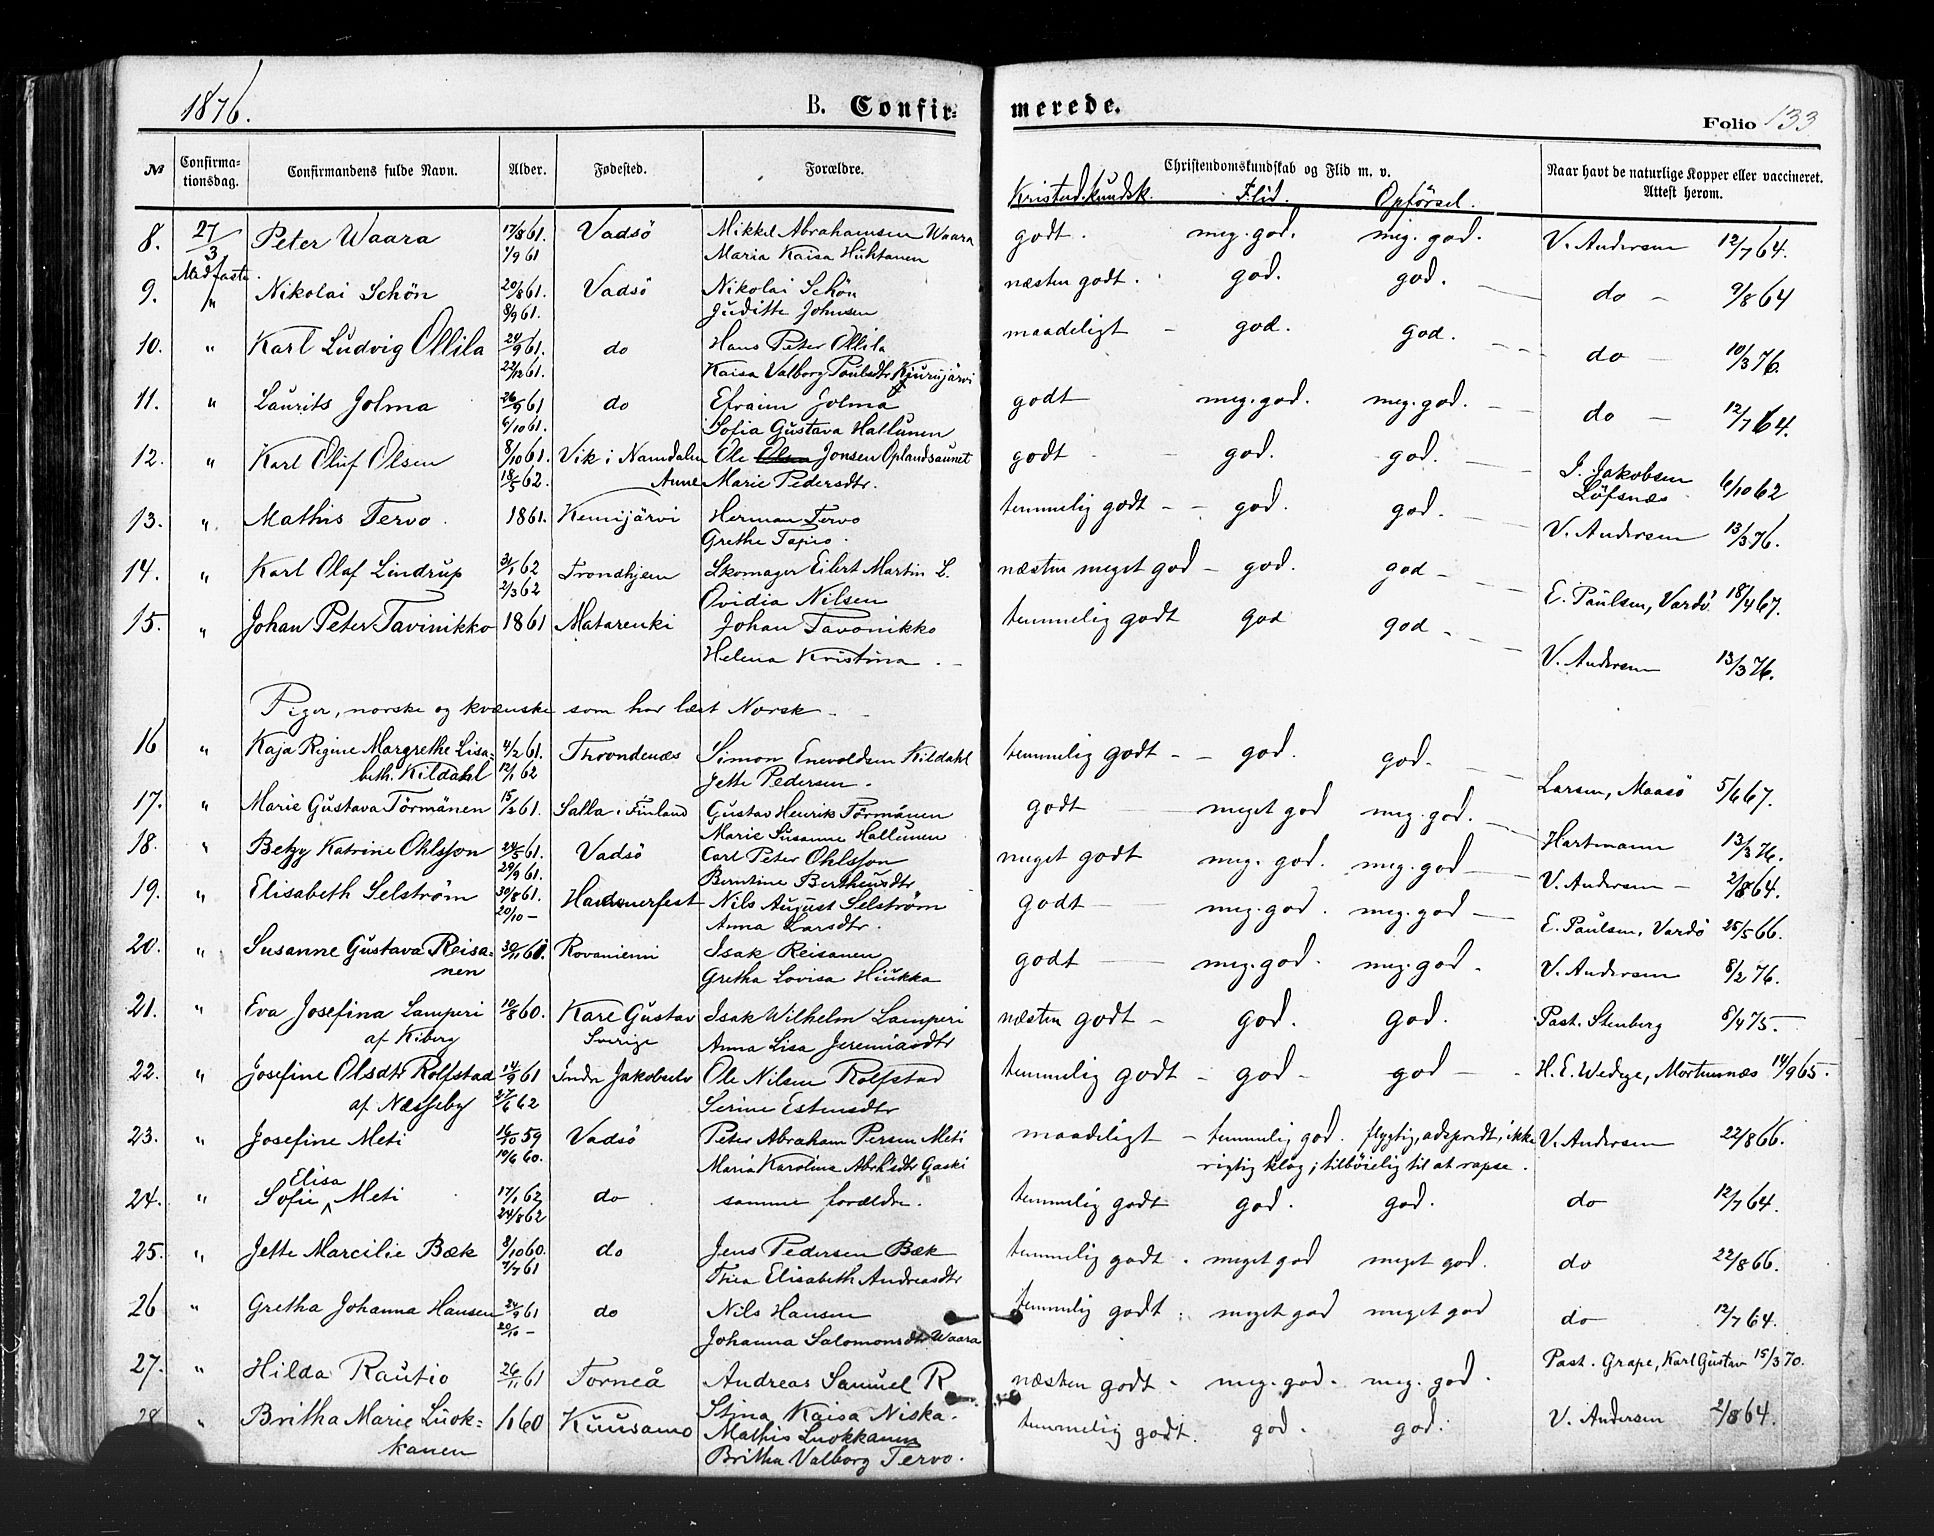 1876. B. Confir- merede. Folio 133
№ Confirma-tionsdag. Confirmandens fulde Navn. Alder. Fødested. Forældre. Christendomskundskab og Flid m. v. Naar havt de naturlige Kopper eller vaccineret. Attest herom.
Kristend.kundsk. Flid. Opførsel.
8. 27/3 Peter Waara 17/8 61. Vadsö Mikkel Abrahamsen Waara godt. meg. god. meg. god. V. Andersen 12/7 64.
Midfaste 1/9 61 Maria Kaisa Huhtanen
9. " Nikolai Schön 20/8 61. Vadsö Nikolai Schön næsten godt. god. god. do 9/8 64
8/9 61. Juditte Johnsen
10. " Karl Ludvig Ollila 24/9 61. do Hans Peter Ollila maadeligt god. god. do 10/3 76.
22/12 61. Kaisa Valborg Paulsdtr Kjurujärvi
11. " Laurits Jolma 26/9 61 do Efraim Jolma godt meg. god. meg. god. do 12/7 64.
6/10 61. Sofia Gustava Hallunen
12. " Karl Oluf Olsen 8/10 61. Vik i Namdalen Ole Olsen Jonsen Oplandsaunet godt god. god. J. Jakobsen Löfsnæs 6/10 62
18/5 62. Anne Marie Pedersdtr.
13. " Mathis Tervo. 1861. Kemijärvi Herman Tervo temmelig godt god. god. V. Andersen 13/3 76.
Grethe Tapio.
14. " Karl Olaf Lindrup 31/1 62 Trondhjem Skomager Eilert Martin L. næsten meget god god. god E. Paulsen, Vardö 18/4 67.
2/3 62 Ovidia Nilsen
15. " Johan Peter Tavinikko 1861 Matarenki Johan Tavonikko temmelig godt god god V. Andersen 13/3 76.
Helena Kristina
Piger, norske og kvænske som har læst Norsk
16 " Kaja Regine Margrethe Lisa- 4/2 61. Throndenæs Simon Enevoldsen Kildahl temmelig godt god. god. Larsen, Maasö 5/6 67.
beth. Kildahl 12/1 62 Jette Pedersen.
17. " Marie Gustava Törmänen 15/2 61. Salla i Finland Gustav Henrik Törmänen godt meget god meg. god. Hartmann 13/3 76.
Marie Susanne Hallunen
18. " Betzy Katrine Ohlsson 24/5 61. Vadsö Carl Peter Ohlsson meget godt meg. god. meg. god V. Andersen 2/8 64.
29/9 61. Berntine Bertheusdtr
19. " Elisabeth Selström 30/8 61. Hammerfest Nils August Selström godt meg. god. meg. god E. Paulsen, Vardö 25/5 66.
20/10 - Anna Larsdtr.
20. " Susanne Gustava Reisa- 30/11 60. Rovaniemi Isak Reisanen godt meg. god. meg. god. V. Andersen 8/2 76.
nen Gretha Lovisa Hiukka
21. " Eva Josefina Lamperi 10/8 60. Kare Gustav Isak Wilhelm Lamperi næsten godt god. god. Past. Stenberg 8/4 75.
af Kiberg Sverige Anna Lisa Jeremiasdtr
22. " Josefine Olsdtr Rolfstad 14/9 61 Indre Jakobselv Ole Nilsen Rolfstad temmelig godt god god H. E. Wedege, Mortensnæs 14/9 65.
af Næsseby 27/6 62 Serine Estensdtr
23. " Josefine Meti 16/10 59 Vadsö Peter Abraham Persen Meti maadeligt temmelig god. flygtig, adspredt, ikke V. Andersen 22/8 66.
10/6 60. Maria Karolina Abrh'sdtr Gaski rigtig klog; tilböielig til at rapse.
24. " Sofie Elisa Meti 17/1 62 do samme forældre. temmelig godt god. god. do 12/7 64.
24/8 62
25. " Jette Marcilie Bæk 8/10 60. do Jens Pedersen Bæk temmelig godt. meget god meget god. do 22/8 66.
7/7 61 Thea Elisabeth Andreasdtr
26 " Gretha Johanna Hansen 24/9 61 do Nils Hansen temmelig godt. meget god meget god do 12/7 64.
20/10 - Johanna Salomonsdtr Waara
27. " Hilda Rautio 26/11 61 Torneå Andreas Samuel R næsten godt. meg. god. meg. god. Past. Grape, Karl Gustav 15/3 70.
Stina Kaisa Niska.
28 " Britha Marie Luok- 1/1 60 Kuusamo Mathis Luokkanen temmelig godt. god. god. V. Andersen 2/8 64.
kanen Britha Valborg Tervo.